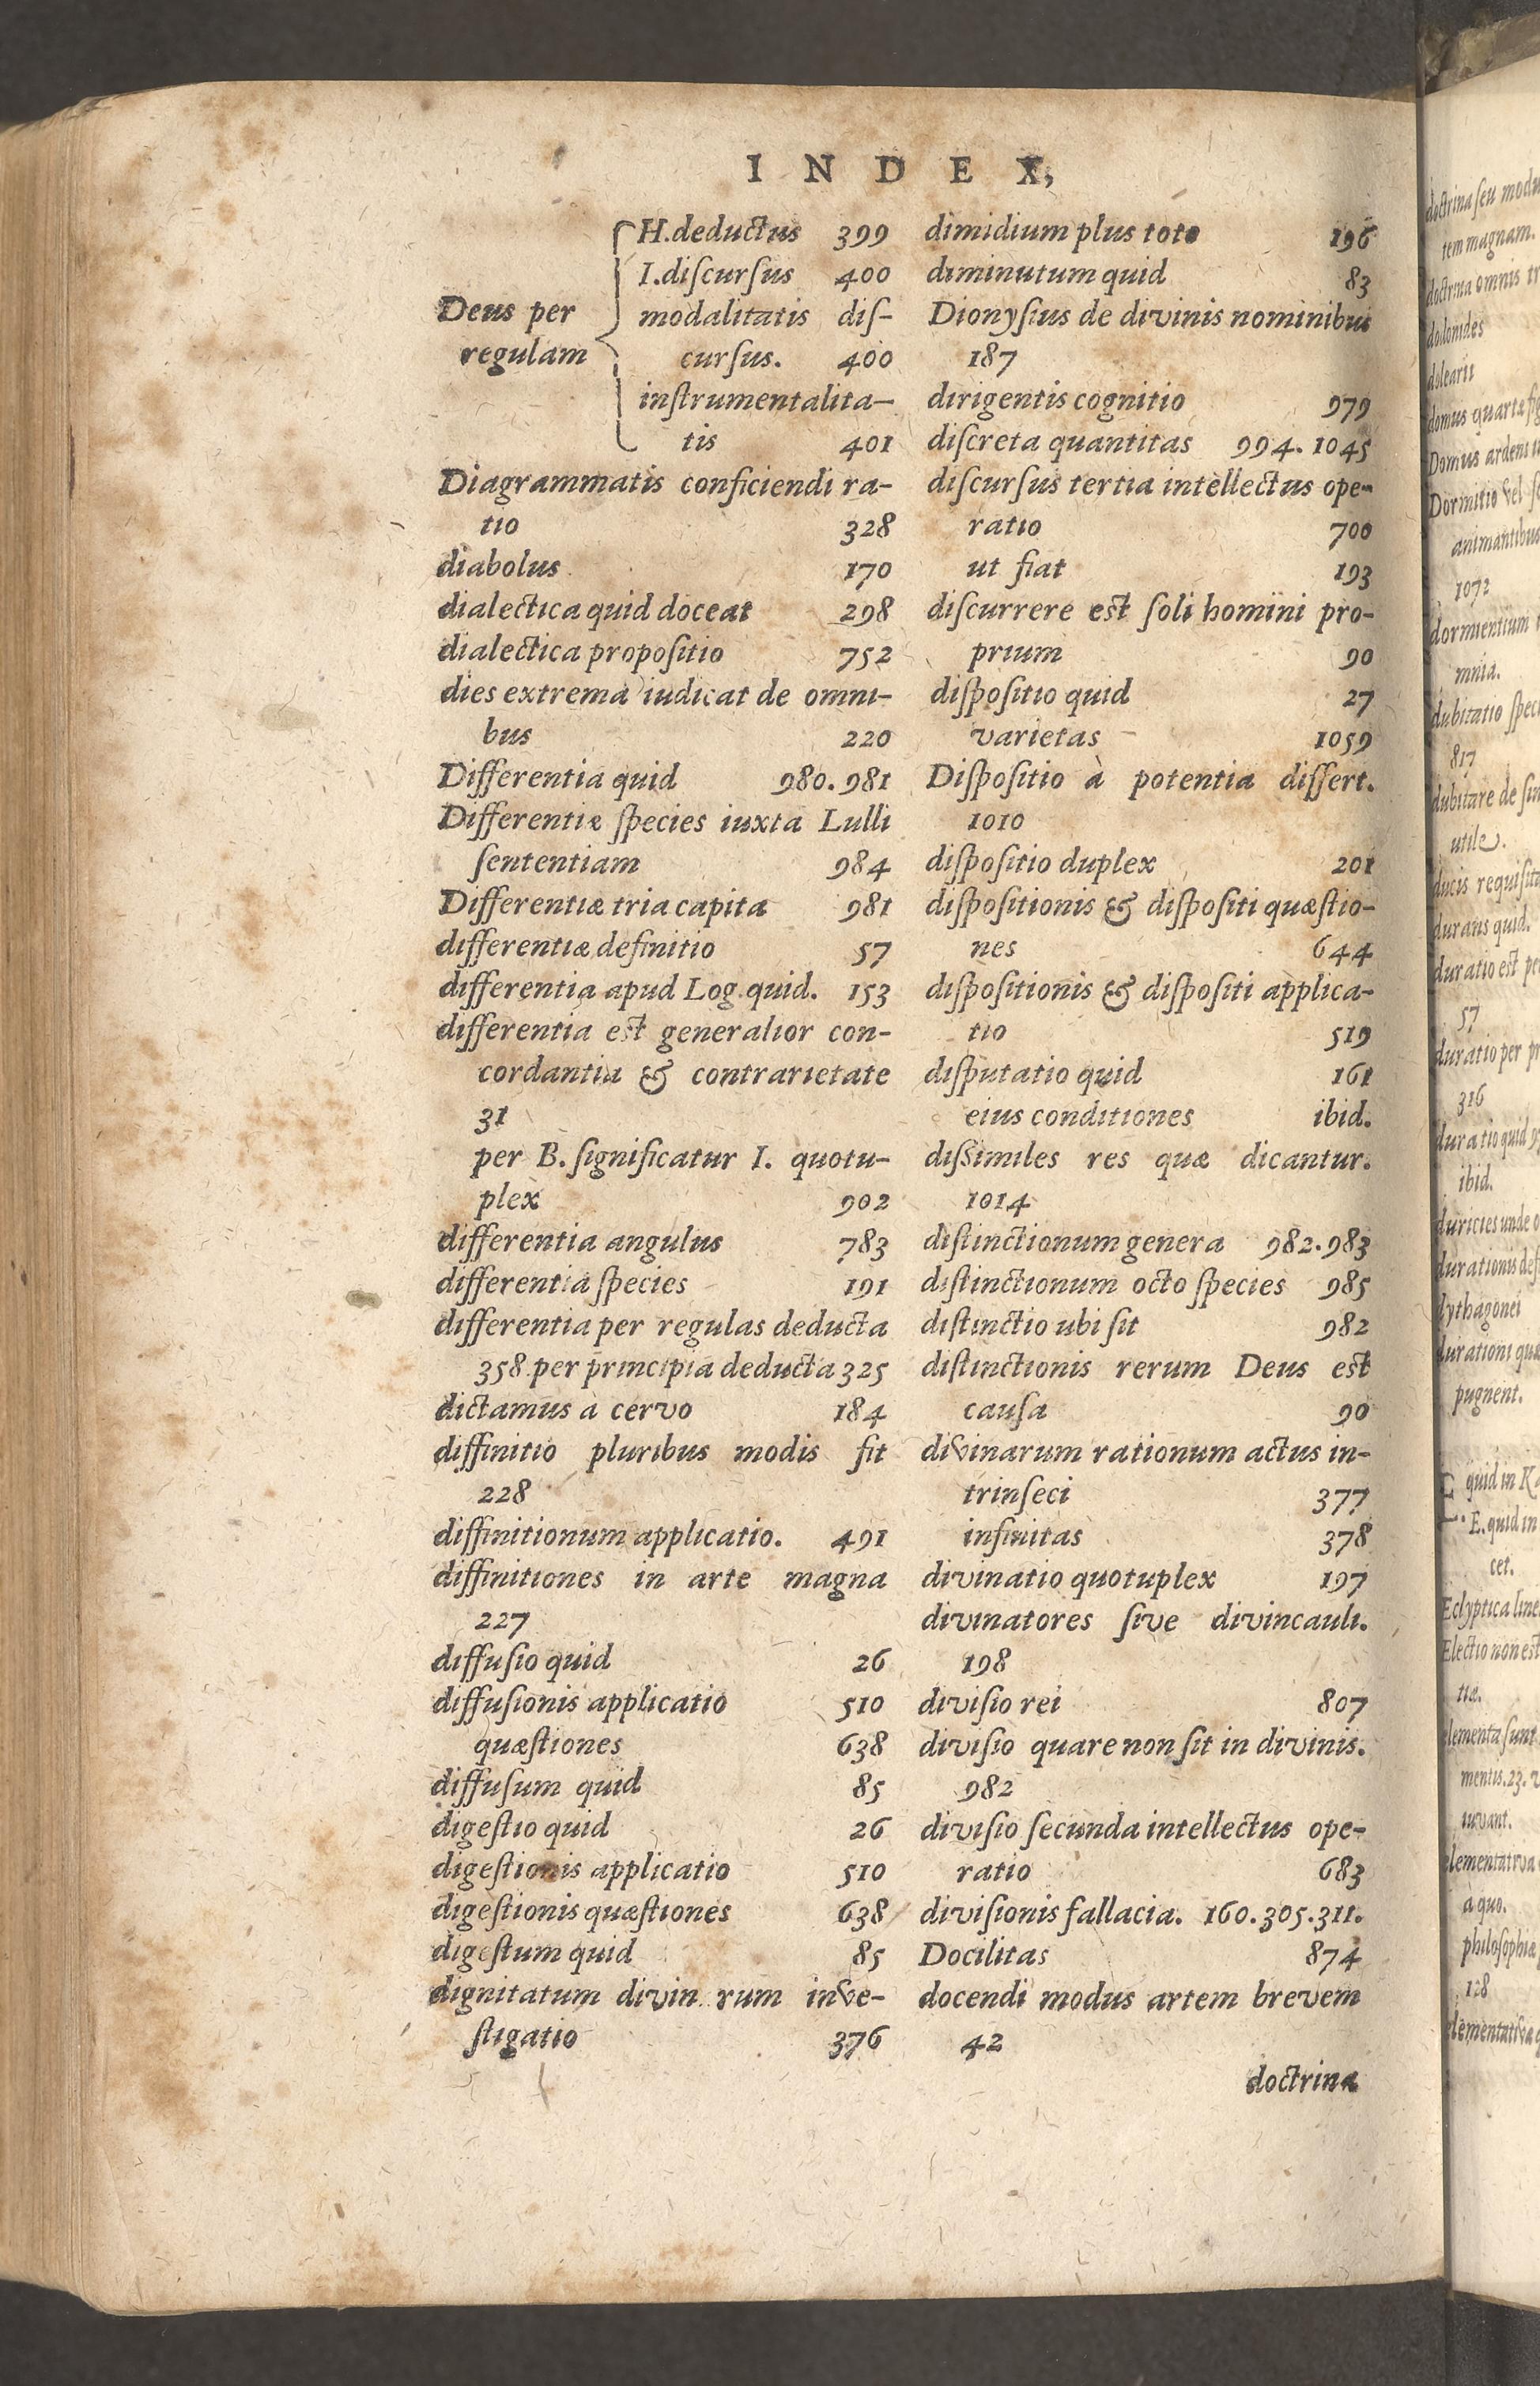 INDEX,
H. deductus 399
I. discursus 400
Deus per
regulam
modalitatis dis-
cursus. 400
instrumentalita-
tis 401
Diagrammatis conficiendi ra-
tio 328
diabolus 170
dialectica quid doceat 298
dialectica propositio 752
dies extrema iudicat de omni-
bus 220
Differentia quid 980. 981
Differentiæ species iuxta Lulli
sententiam 984
Differentiæ tria capita 981
differentiæ definitio 57
differentia apud Log. quid. 153
differentia est generalior con-
cordantia & contrarietate
31
per B. significatur I. quotu-
plex 902
differentia angulus 783
differentia species 191
differentia per regulas deducta
358. per principia deducta 325
dictamus à cervo 184
diffinitio pluribus modis fit
228
diffinitionum applicatio. 491
diffinitiones in arte magna
227
diffusio quid 26
diffusionis applicatio 510
quæstiones 638
diffusum quid 85
digestio quid 26
digestionis applicatio 510
digestionis quæstiones 638
digestum quid 85
dignitatum divin rum inve-
stigatio 376
dimidium plus toto 196
diminutum quid 83
Dionysius de divinis nominibus
187
dirigentis cognitio 979
discreta quantitas 994. 1045
discursus tertia intellectus ope-
ratio 700
ut fiat 193
discurrere est soli homini pro-
prium 90
dispositio quid 27
varietas 1059
Dispositio à potentia differt.
1010
dispositio duplex 201
dispositionis & dispositi quæstio-
nes 644
dispositionis & dispositi applica-
tio 519
disputatio quid 161
eius conditiones ibid.
dissimiles res quæ dicantur.
1014
distinctionum genera 982. 983
distinctionum octo species 985
distinctio ubi sit 982
distinctionis rerum Deus est
causa 90
divinarum rationum actus in-
trinseci 377
infinitas 378
divinatio quotuplex 197
divinatores sive divincauli.
198
divisio rei 807
divisio quare non sit in divinis.
982
divisio secunda intellectus ope-
ratio 683
divisionis fallacia. 160. 305. 311.
Docilitas 874
docendi modus artem brevem
42
doctrina
doctrina seu
tem magnam.
doctrina omnis
dolearii
domus quartæ
Domus ardens
Dormitio vel
1072
dormientium
mnia.
dubitatio
817
dubitare de
utile.
ducis
durans quid.
duratio est
57
duratio per
316
duratio quid
ibid.
duricies unde
durationis
durationi
pugnent.
quid in
E. quid in
cet.
Eclyptica
Electio non est
tiæ.
elementa sunt
mentis. 23.
iuvant.
à quo.
philosophiæ
128